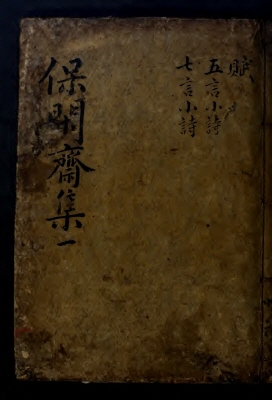 賦
五言小詩
七言小詩
保閑齋集一